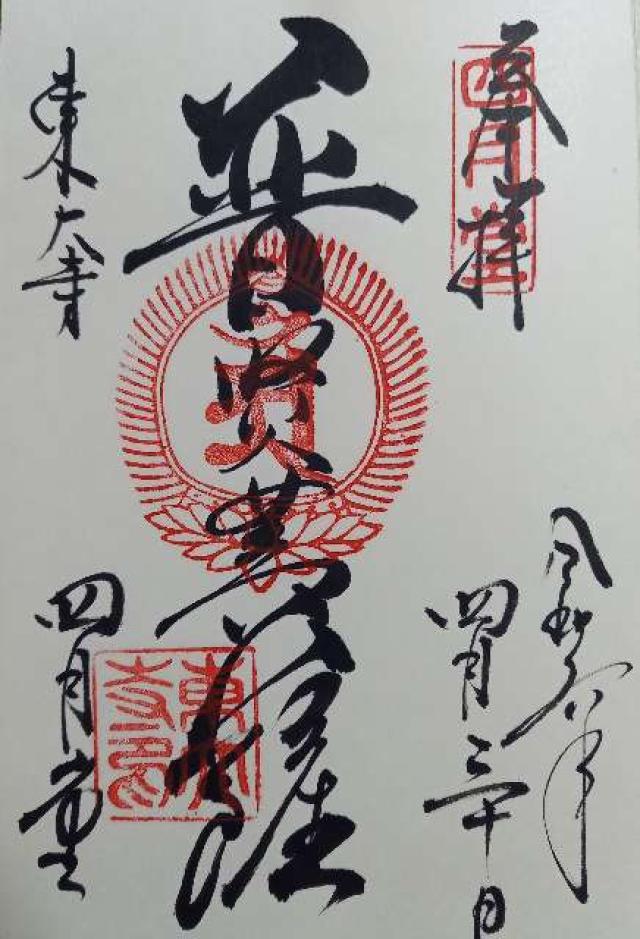 奉拝
四月堂
令和六年
四月三十日
普賢菩薩
東大寺
四月堂
東大寺印